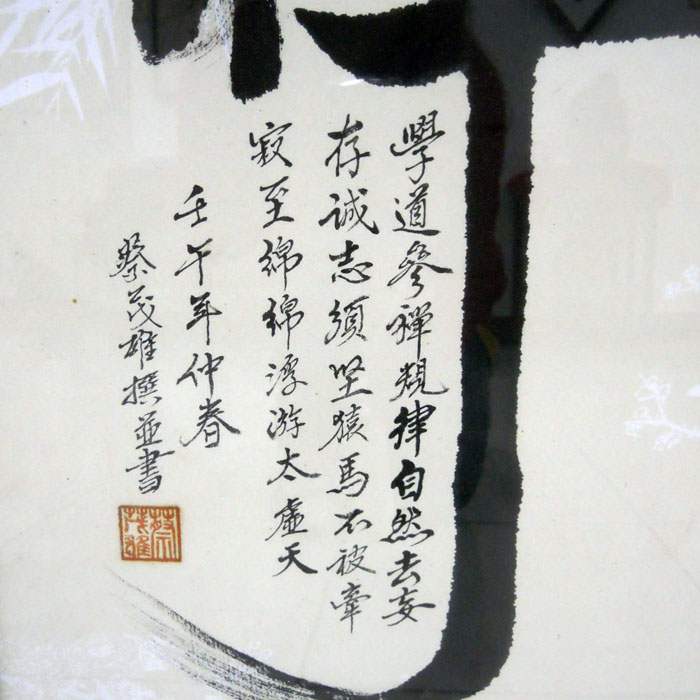 學道參禪規律自然去妄
存誠志須坚猿馬不被牽
寂至綿綿浮游太虛天
壬午年仲春
蔡茂雄撰並書
蔡茂雄